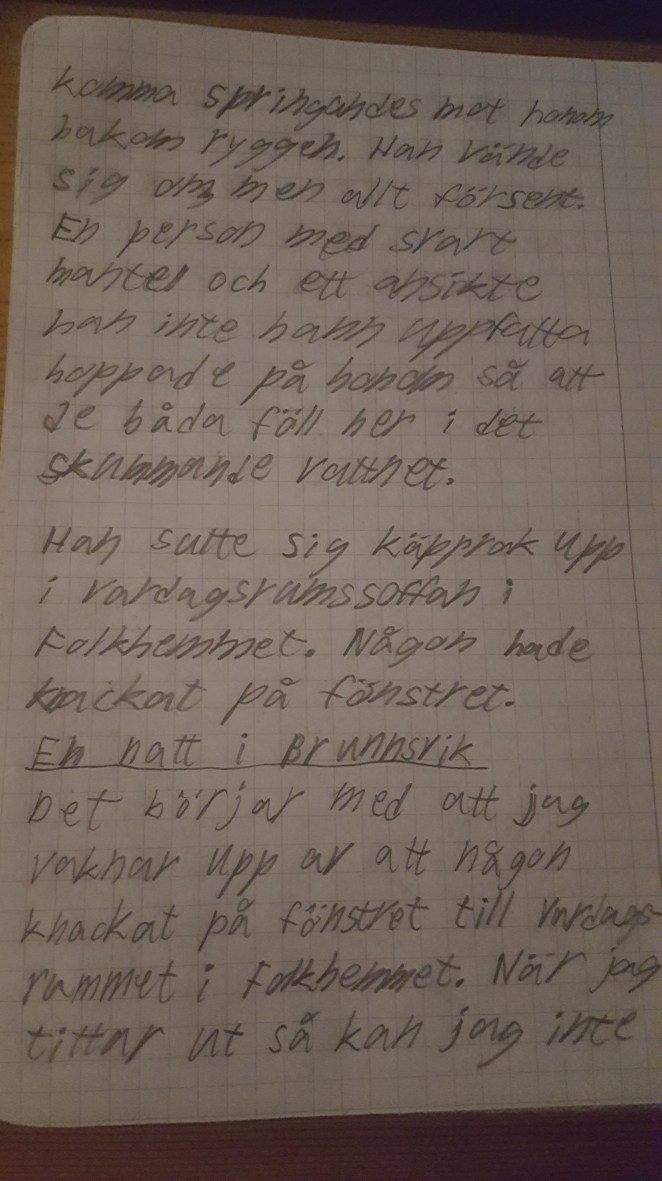 komma springandes mot honom
bakom ryggen. Han vände
sig om, men allt försent.
En person med svart
mantel och ett ansikte
han inte hann uppfatta
hoppade på honom så att
de båda föll ner i det
skummande vattnet.
Han satte sig käpprak upp
i vardagsrumssoffan i
Folkhemmet. Någon hade
knackat på fönstret.
En natt i Brunnsvik
Det börjar med att jag
vaknar upp av att någon
knackat på fönstret till vardags-
rummet i Folkhemmet. När jag
tittar ut så kan jag inte